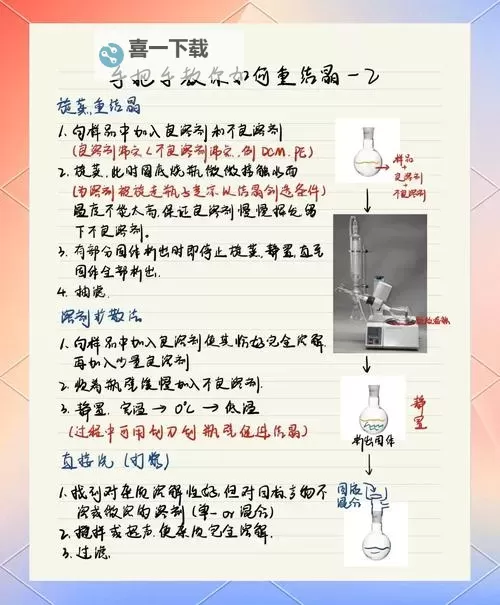 喜一下载
手把手教你如何重结晶-2
旋蒸重结晶
1. 向样品中加入良溶剂和不良溶剂
(良溶剂沸点<不良溶剂沸点,例DCM,PE)
2. 旋蒸,此时圆底烧瓶微微接触水面
温度不能太高,保证良溶剂慢慢挥发留
下不良溶剂。
3. 有部分固体析出时即停止旋蒸,静置,直至
固体全部析出
4. 抽滤.
溶剂扩散法
1. 向样品中加入良溶剂使其恰好完全溶解
再加入少量良溶剂
2. 沿着瓶壁缓慢加入不良溶剂.
3. 静置,室温→0℃→低温
(过程中可用刮刀刮瓶壁促进结晶)
直接洗(打浆)
1. 找到对杂质溶解性好,但对目标产物不
溶或微溶的溶剂(单一or混合)
2. 搅拌或超声,使杂质完全溶解.
3. 过滤.
样品
+
良溶剂
+
不良溶剂
静置
析出固体
固液